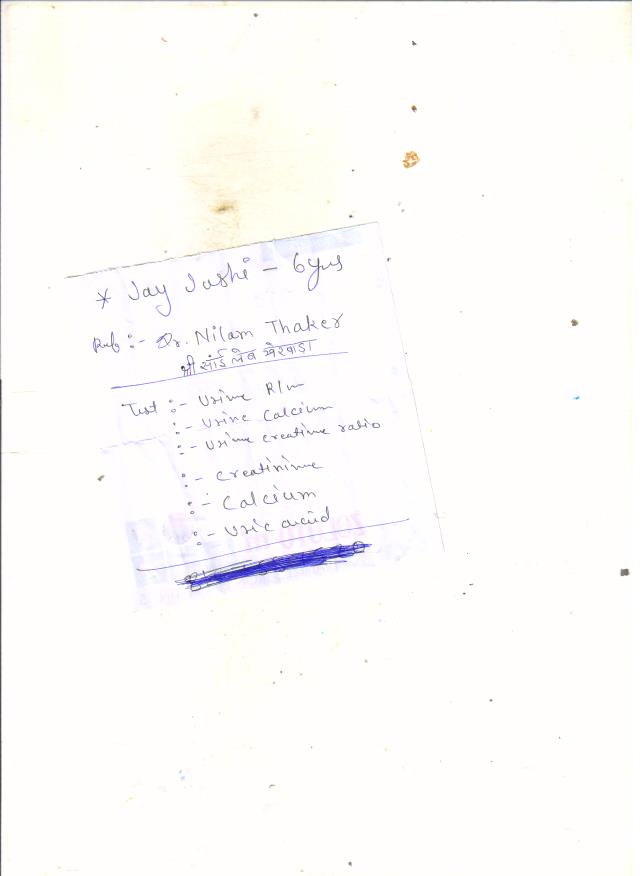 * Jay Joshi - 6 yrs
Ref :- Dr. Nilam Thaker
श्री सांई लेब खेरवाडा
Test :- Urine R/m
:- Urine Calcium
:- Urine creatine ratio
:- Creatinine
:- Calcium
:- Uric acid